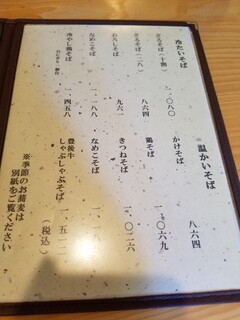 冷たいそば
ざるそば（十割）
一、〇八〇
ざるそば（二八）
八六四
おろしそば
九六一
なめこそば
一、一八八
冷やし鶏そば
一、四五八
温かいそば
かけそば
八六四
鶏そば
一、〇六九
きつねそば
一、〇二六
なめこそば
豊後牛
しゃぶしゃぶそば
（税込）
※季節のお蕎麦は
別紙をご覧ください